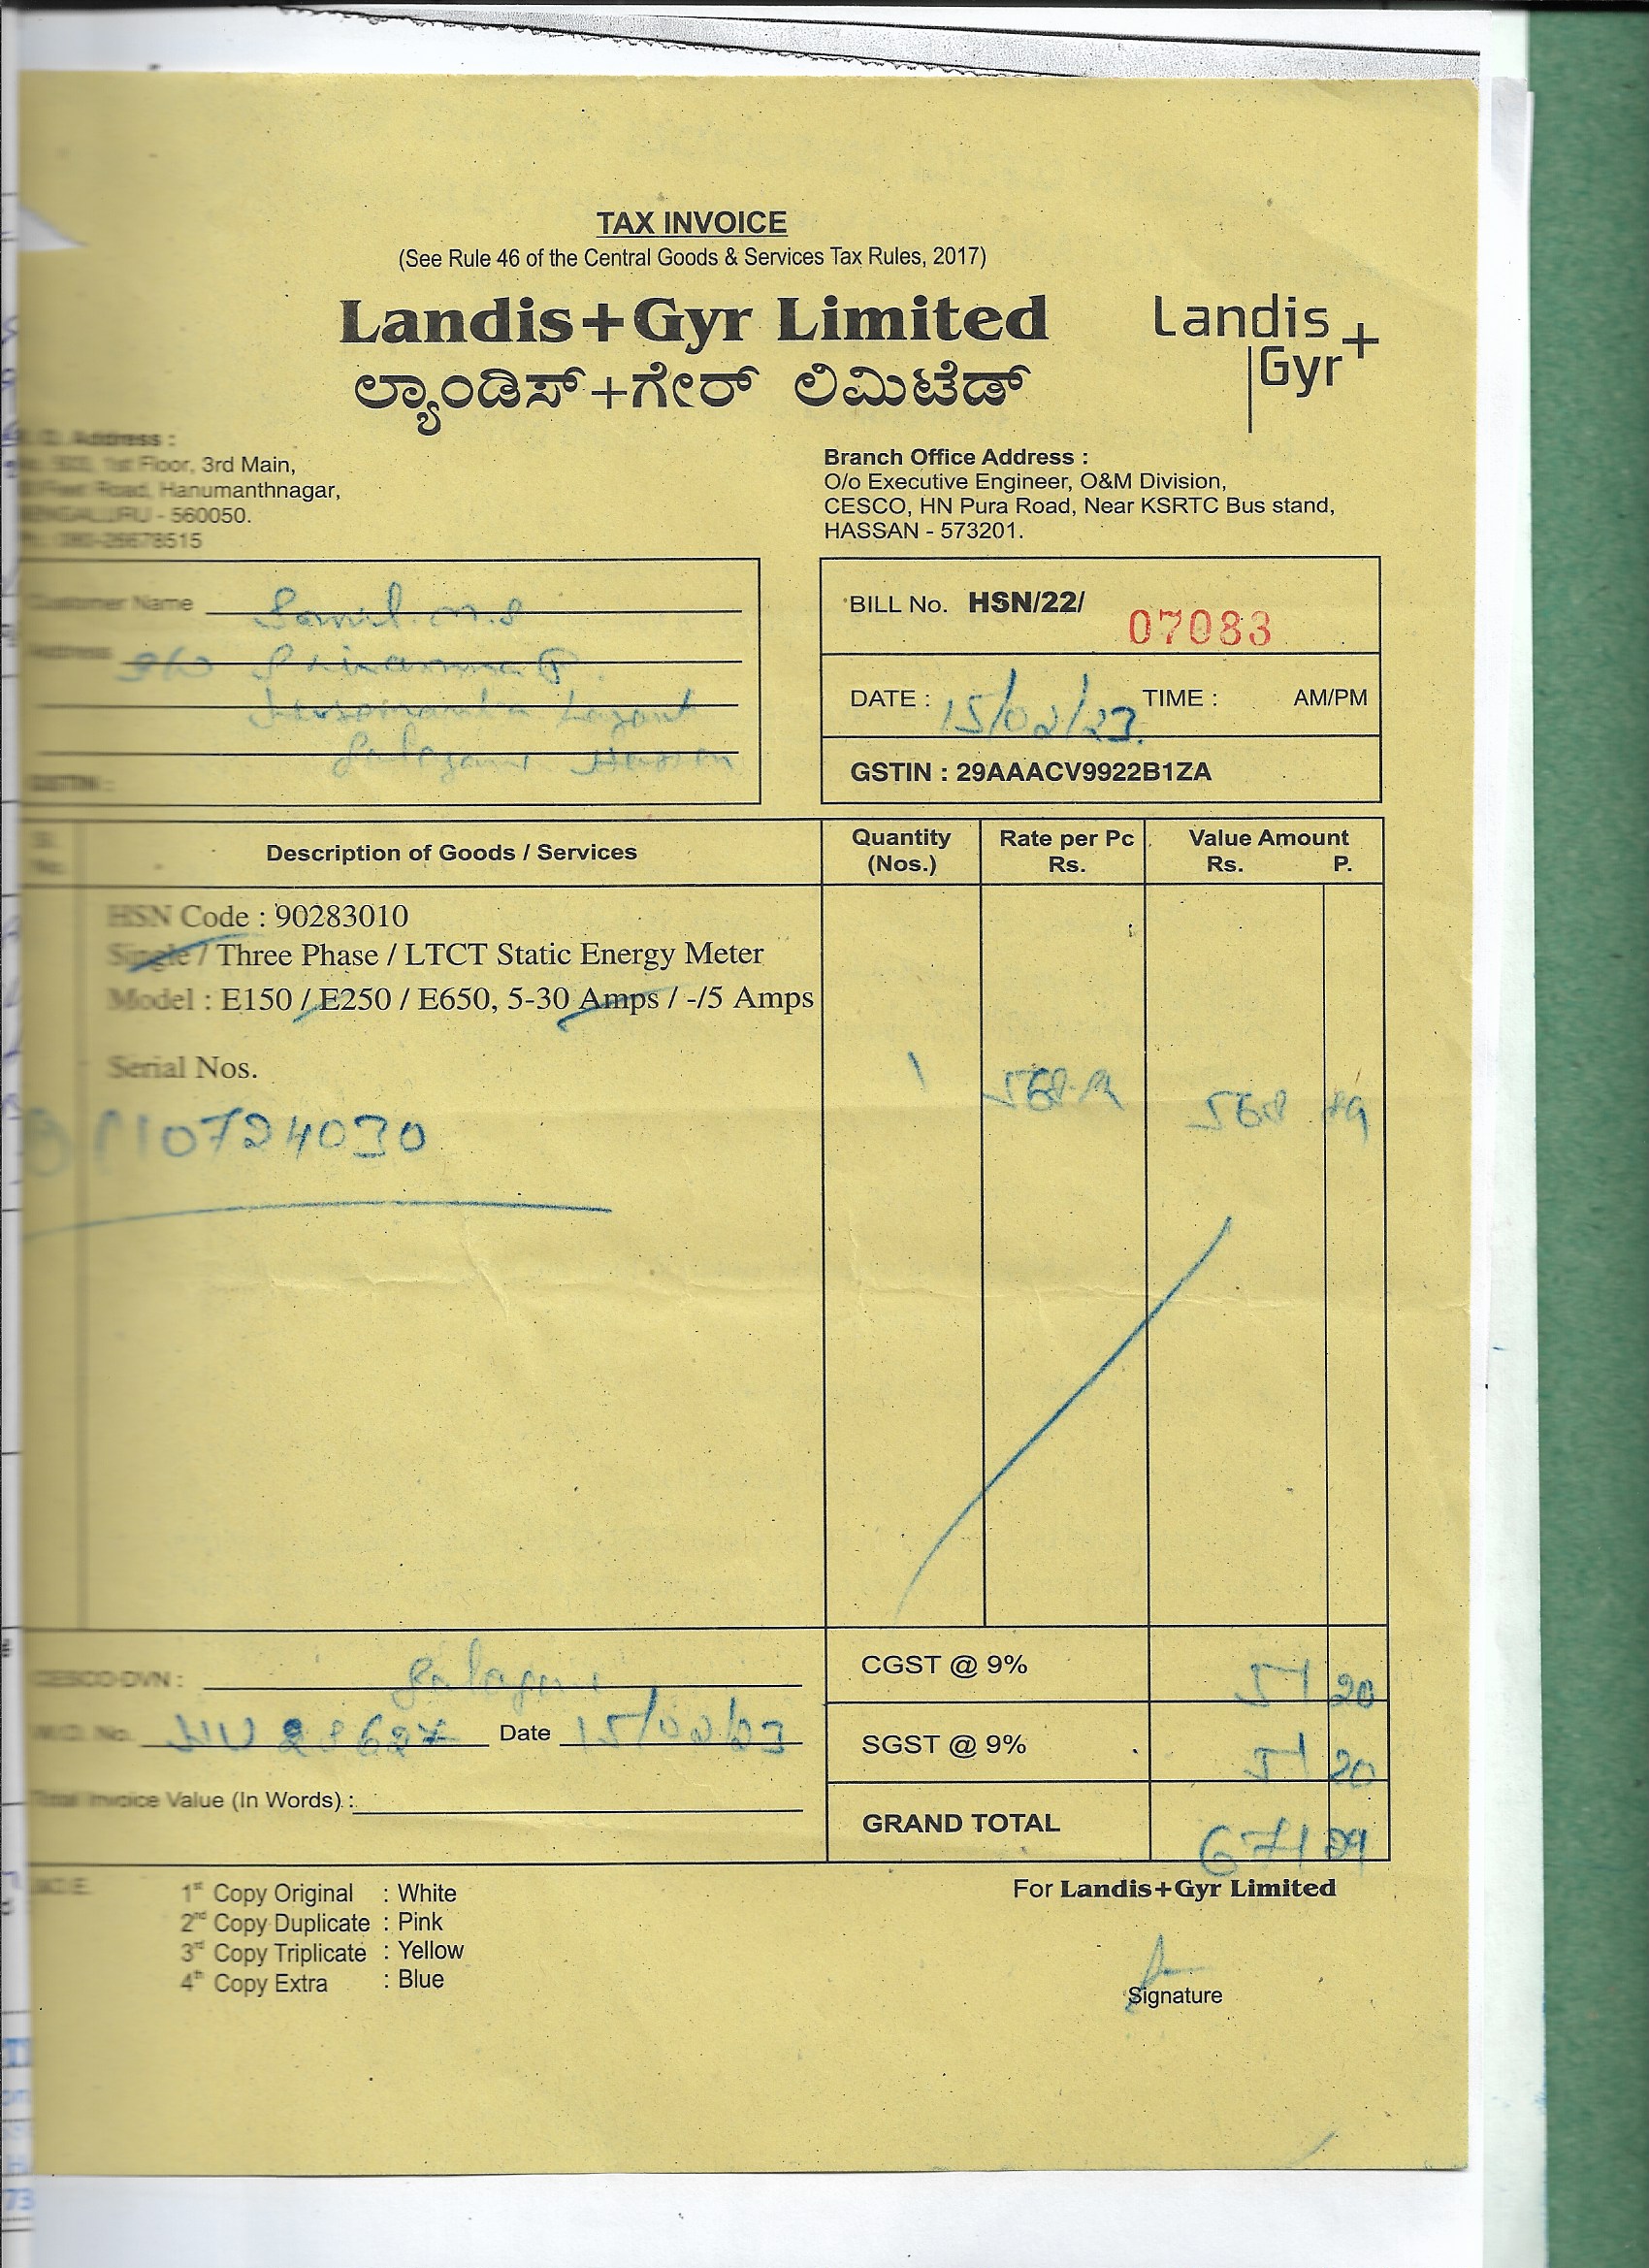 TAX INVOICE
(See Rule 46 of the Central Goods & Services Tax Rules, 2017)
Landis+Gyr Limited
Landis
Gyr+
ಲ್ಯಾಂಡಿಸ್+ಗೇರ್ ಲಿಮಿಟೆಡ್
Address :
1st Floor, 3rd Main,
Road, Hanumanthnagar,
BENGALURU - 560050.
Ph: 080-26678515
Branch Office Address :
O/o Executive Engineer, O&M Division,
CESCO, HN Pura Road, Near KSRTC Bus stand,
HASSAN - 573201.
Customer Name
Address
Layout
Hassan
GSTIN :
BILL No. HSN/22/ 07083
DATE : 15/02/23 TIME : AM/PM
GSTIN : 29AAACV9922B1ZA
Sl. No.
Description of Goods / Services
Quantity (Nos.)
Rate per Pc Rs.
Value Amount Rs. P.
HSN Code : 90283010
Single / Three Phase / LTCT Static Energy Meter
Model : E150 / E250 / E650, 5-30 Amps / -/5 Amps
Serial Nos.
1
568
10724030
CESCO-DVN :
W.O. No. Date 15/02/23
Total Invoice Value (In Words) :
CGST @ 9% 51 20
SGST @ 9% 51 20
GRAND TOTAL 671
NOTE
1st Copy Original : White
2nd Copy Duplicate : Pink
3rd Copy Triplicate : Yellow
4th Copy Extra : Blue
For Landis+Gyr Limited
Signature